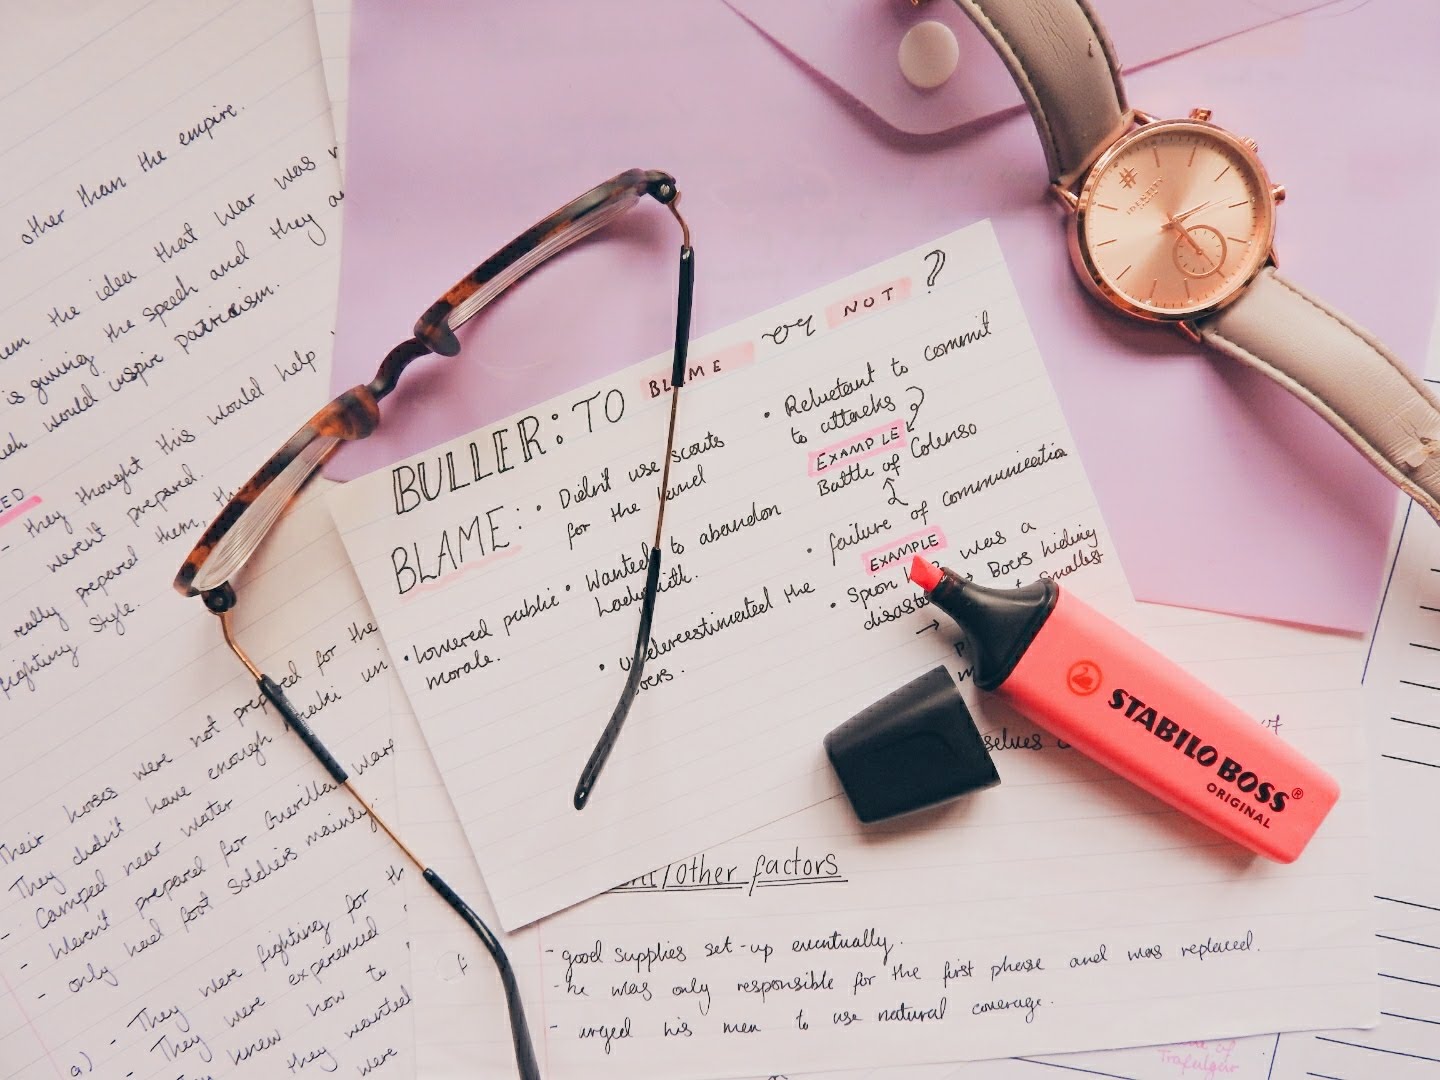 other than the empire.
the idea that war was
is giving the speech and they
would inspire patriotism.
- they thought this would help
weren't prepared.
really prepared them,
fighting style.
Their horses were not prepared for the
They didn't have enough
- Camped near water
- Weren't prepared for Guerilla
- only had foot soldiers mainly.
a) - They were fighting for
- They were experienced
- They knew how to
they wanted
were
BULLER: TO BLAME or NOT?
BLAME:
• Didn't use scouts
for the land
• lowered public
morale.
• Wanted to abandon
Ladysmith.
• underestimated the
Boers.
• Reluctant to commit
to attacks
EXAMPLE
Battle of Colenso
• failure of communication
EXAMPLE
• Spion was a
→ Boers hiding
smallest
→
/other factors
- good supplies set-up eventually.
- he was only responsible for the first phase and was replaced.
- urged his men to use natural coverage.
of
Trafalgar
# IDENTITY
STABILO BOSS®
ORIGINAL